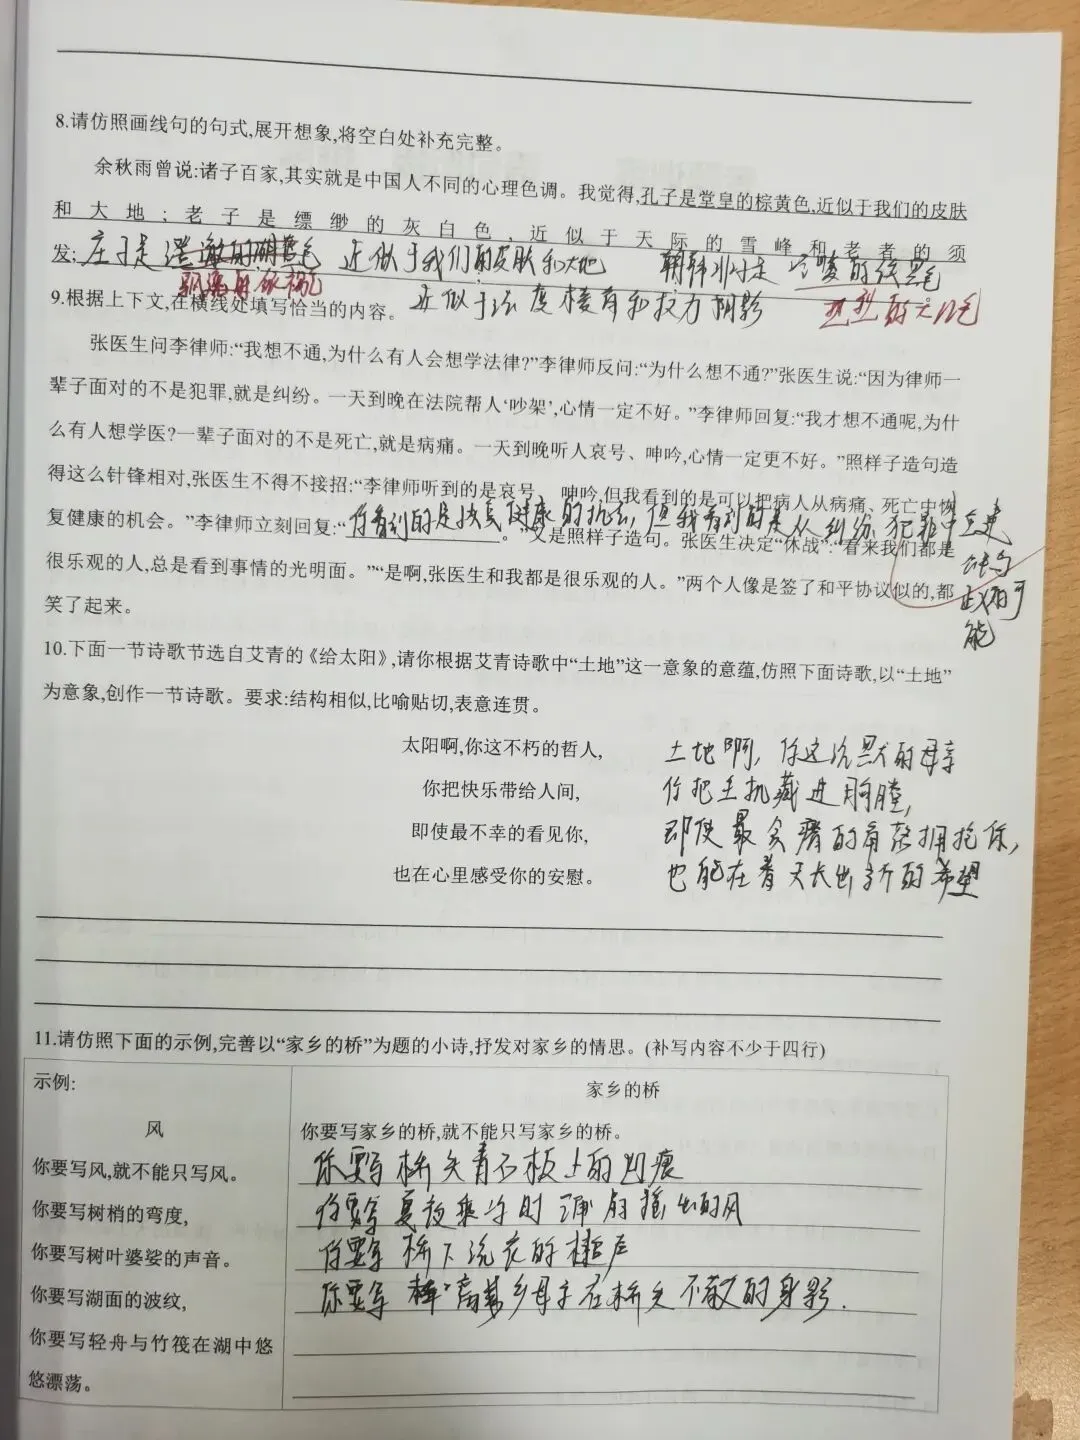 8.请仿照画线句的句式,展开想象,将空白处补充完整。
余秋雨曾说:诸子百家,其实就是中国人不同的心理色调。我觉得,孔子是堂皇的棕黄色,近似于我们的皮肤
和大地;老子是缥缈的灰白色,近似于天际的雪峰和老者的须
发;庄子是 近似于我们的皮肤和大地 韩非子是 的铁黑色
9.根据上下文,在横线处填写恰当的内容。 近似于 和权力阴影 的
张医生问李律师:“我想不通,为什么有人会想学法律?”李律师反问:“为什么想不通?”张医生说:“因为律师一
辈子面对的不是犯罪,就是纠纷。一天到晚在法院帮人‘吵架’,心情一定不好。”李律师回复:“我才想不通呢,为什
么有人想学医?一辈子面对的不是死亡,就是病痛。一天到晚听人哀号、呻吟,心情一定更不好。”照样子造句造
得这么针锋相对,张医生不得不接招:“李律师听到的是哀号、呻吟,但我看到的是可以把病人从病痛、死亡中恢
复健康的机会。”李律师立刻回复:“你看到的是恢复健康的机会,但我看到的是从纠纷、犯罪中
。”又是照样子造句。张医生决定“休战”:“看来我们都是
很乐观的人,总是看到事情的光明面。”“是啊,张医生和我都是很乐观的人。”两个人像是签了和平协议似的,都
正义的可
笑了起来。
能
10.下面一节诗歌节选自艾青的《给太阳》,请你根据艾青诗歌中“土地”这一意象的意蕴,仿照下面诗歌,以“土地”
为意象,创作一节诗歌。要求:结构相似,比喻贴切,表意连贯。
太阳啊,你这不朽的哲人,
土地啊,你这沉默的母亲
你把快乐带给人间,
你把生机藏进胸膛,
即使最不幸的看见你,
即使最贫瘠的角落拥抱你,
也在心里感受你的安慰。
也能在春天长出新的希望
11.请仿照下面的示例,完善以“家乡的桥”为题的小诗,抒发对家乡的情思。(补写内容不少于四行)
示例:
风
你要写风,就不能只写风。
你要写树梢的弯度,
你要写树叶婆娑的声音。
你要写湖面的波纹,
你要写轻舟与竹筏在湖中悠
悠漂荡。
家乡的桥
你要写家乡的桥,就不能只写家乡的桥。
你要写桥头青石板上的凹痕
你要写夏夜乘凉时 扇摇出的风
你要写桥下洗衣的棰声
你要写 离乡 母亲在桥头不散的身影.